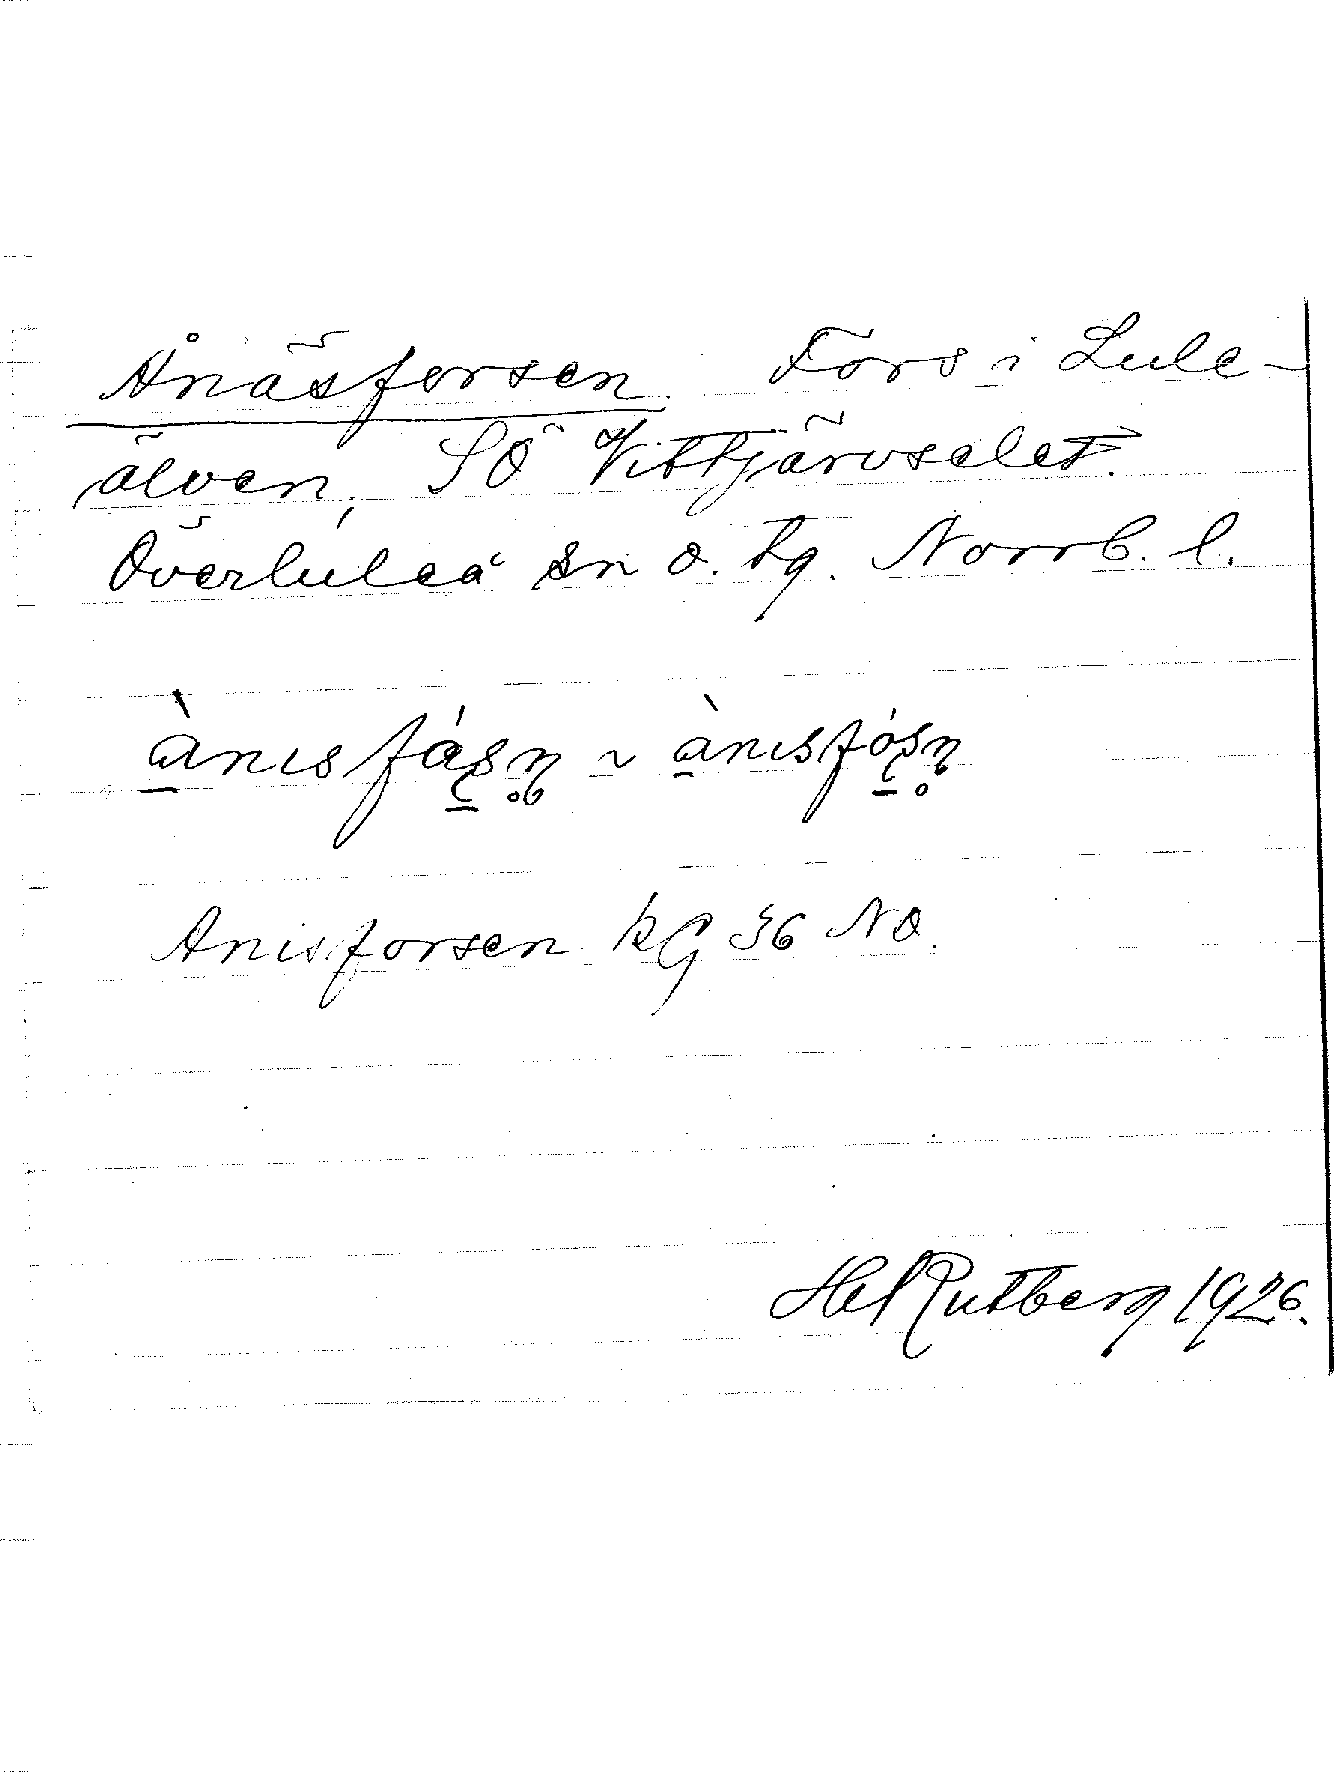 Ånäsforsen. Fors i Lule-
älven, SÖ Vittjärvselet.
Överluleå sn o. tg. Norrb. l.
ànısfáṣṇ ~ ànısfóṣṇ
Anisforsen kG 36 NO.
Hel Rutberg 1926.